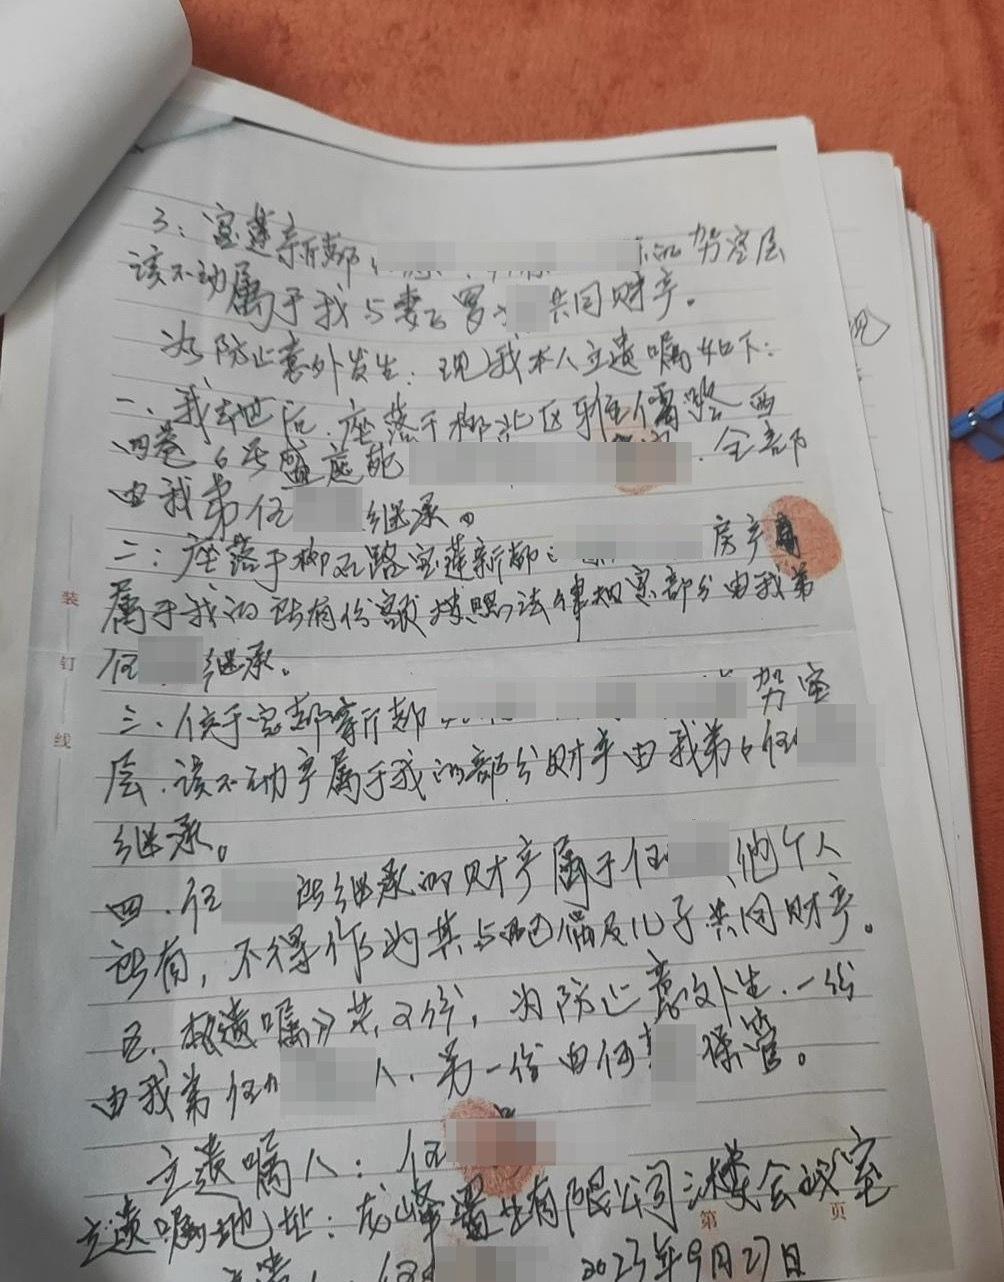 3：宝莲新都 架空层
该不动属于我与妻子罗 共同财产。
为防止意外发生，现我本人立遗嘱如下：
一、我去世后，座落于柳北区雅儒路西
四巷6号 全部
由我弟伍 继承。
二：座落于柳石路宝莲新都 房产
属于我的所有份额按照法律规定部分由我弟
伍 继承。
三、位于宝莲新都 架空
层，该不动产属于我的部分财产由我弟伍
继承。
四、伍 所继承的财产属于伍 他个人
所有，不得作为其与配偶及儿子共同财产。
五、本遗嘱共2份，为防止意外发生，一份
由我弟伍 人，另一份由何 保管。
立遗嘱人：伍
立遗嘱地址：龙 有限公司三楼会议室
伍 2023年9月27日
装
钉
线
第 页